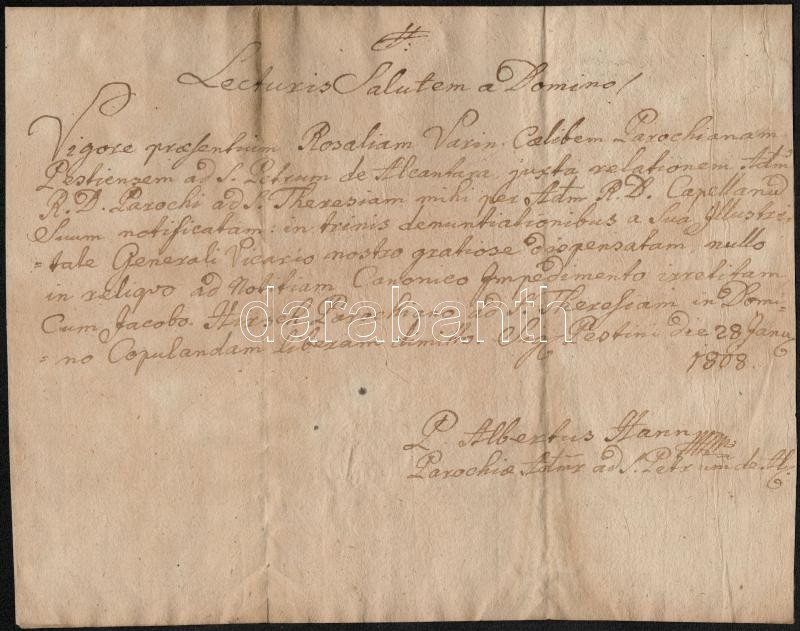 Lecturis Salutem a Domino!
Vigore præsentium Rosaliam Varin, Cælibem Parochianam
Pestiensem ad S. Petrum de Alcantara, juxta relationem Adm̄
R. D. Parochi ad S. Theresiam mihi per Adm̄ R. D. Capellanū
Suum notificatam: in trinis denuntiationibus a Sua Illustri-
=tate Generali Vicario nostro gratiose dispensatam, nullo
in reliquo ad Notitiam Canonico Impedimento irretitam,
Cum Jacobo Hirsch Parochiano ad S. Theresiam in Domi-
=no Copulandam liberam dimitto. Sig. Pestini die 28 Janu
1808.
P. Albertus Hann
Parochiæ ad S. Petrum de Al.
darabanth